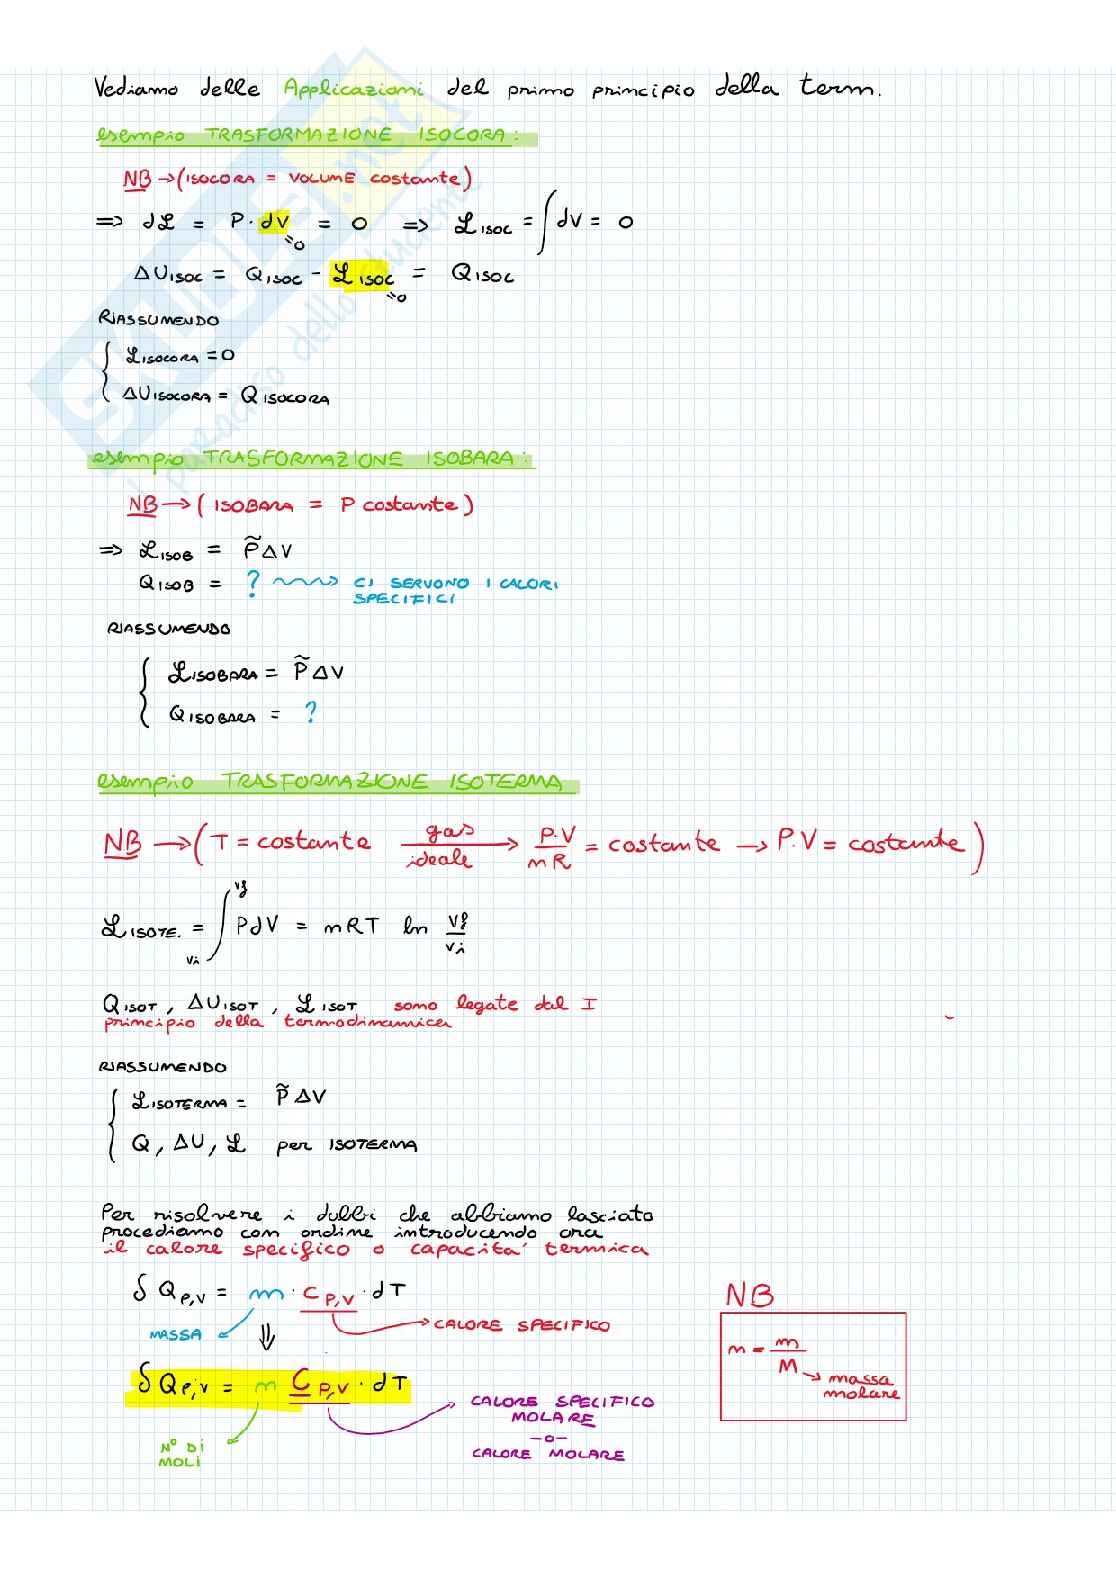 Vediamo delle Applicazioni del primo principio della term.
esempio TRASFORMAZIONE ISOCORA:
NB → (ISOCORA = VOLUME costante)
⇒ dℒ = P · dV = 0 ⇒ ℒ ISOC = ∫ dV = 0
=0
ΔU ISOC = Q ISOC - ℒ ISOC = Q ISOC
=0
RIASSUMENDO
{ ℒ ISOCORA = 0
ΔU ISOCORA = Q ISOCORA
esempio TRASFORMAZIONE ISOBARA:
NB → ( ISOBARA = P costante )
⇒ ℒ ISOB = P̃ ΔV
Q ISOB = ? ⟿ CI SERVONO I CALORI
SPECIFICI
RIASSUMENDO
{ ℒ ISOBARA = P̃ ΔV
Q ISOBARA = ?
esempio TRASFORMAZIONE ISOTERMA
NB → ( T = costante gas ideale → P.V / nR = costante → P.V = costante )
ℒ ISOTE. = ∫ Vi Vf PdV = nRT ln Vf / Vi
Q ISOT , ΔU ISOT , ℒ ISOT sono legate dal I
principio della termodinamica
RIASSUMENDO
{ ℒ ISOTERMA = P̃ ΔV
Q , ΔU , ℒ per ISOTERMA
Per risolvere i dubbi che abbiamo lasciato
procediamo con ordine introducendo ora
il calore specifico o capacita' termica
δ Q P,V = m · C P,V · dT
NB
MASSA
CALORE SPECIFICO
n = m / M
massa
molare
δ Q P,V = n C P,V · dT
CALORE SPECIFICO
MOLARE
-o-
CALORE MOLARE
N° DI
MOLI
SKUOLA.net
il paradiso dello studente